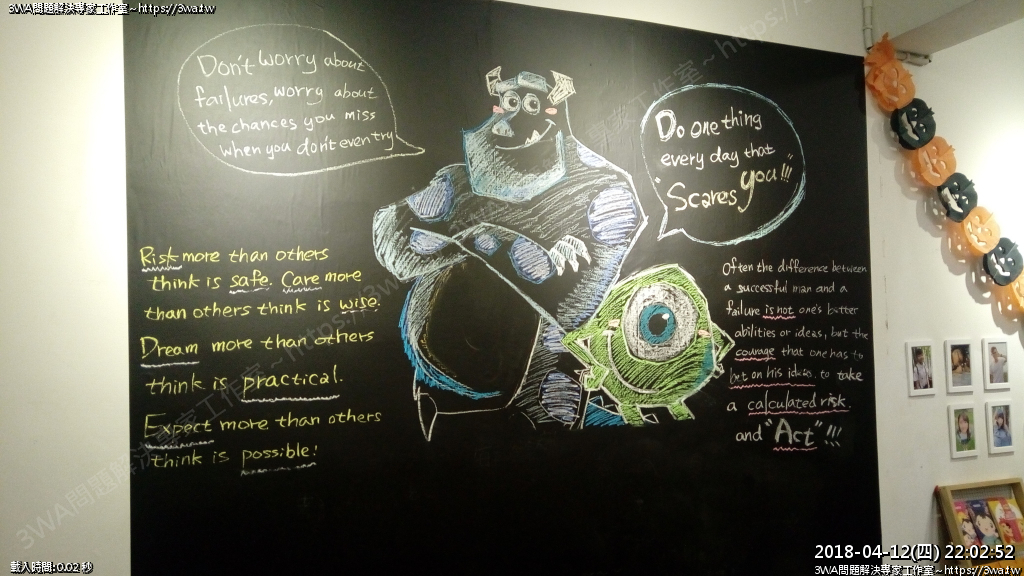 3WA問題解決專家工作室~https://3wa.tw
3WA問題解決專家工作室~https://3wa.tw
Don't worry about
failures, worry about
the chances you miss
when you don't even try
Do one thing
every day that
"Scares you!!!"
Risk more than others
think is safe. Care more
than others think is wise.
Dream more than others
think is practical.
Expect more than others
think is possible!
Often the difference between
a successful man and a
failure is not one's better
abilities or ideas, but the
courage that one has to
bet on his ideas, to take
a calculated risk
and "Act"!!!
3WA問題解決專家工作室~https://
載入時間:0.02 秒
2018-04-12(四) 22:02:52
3WA問題解決專家工作室~https://3wa.tw